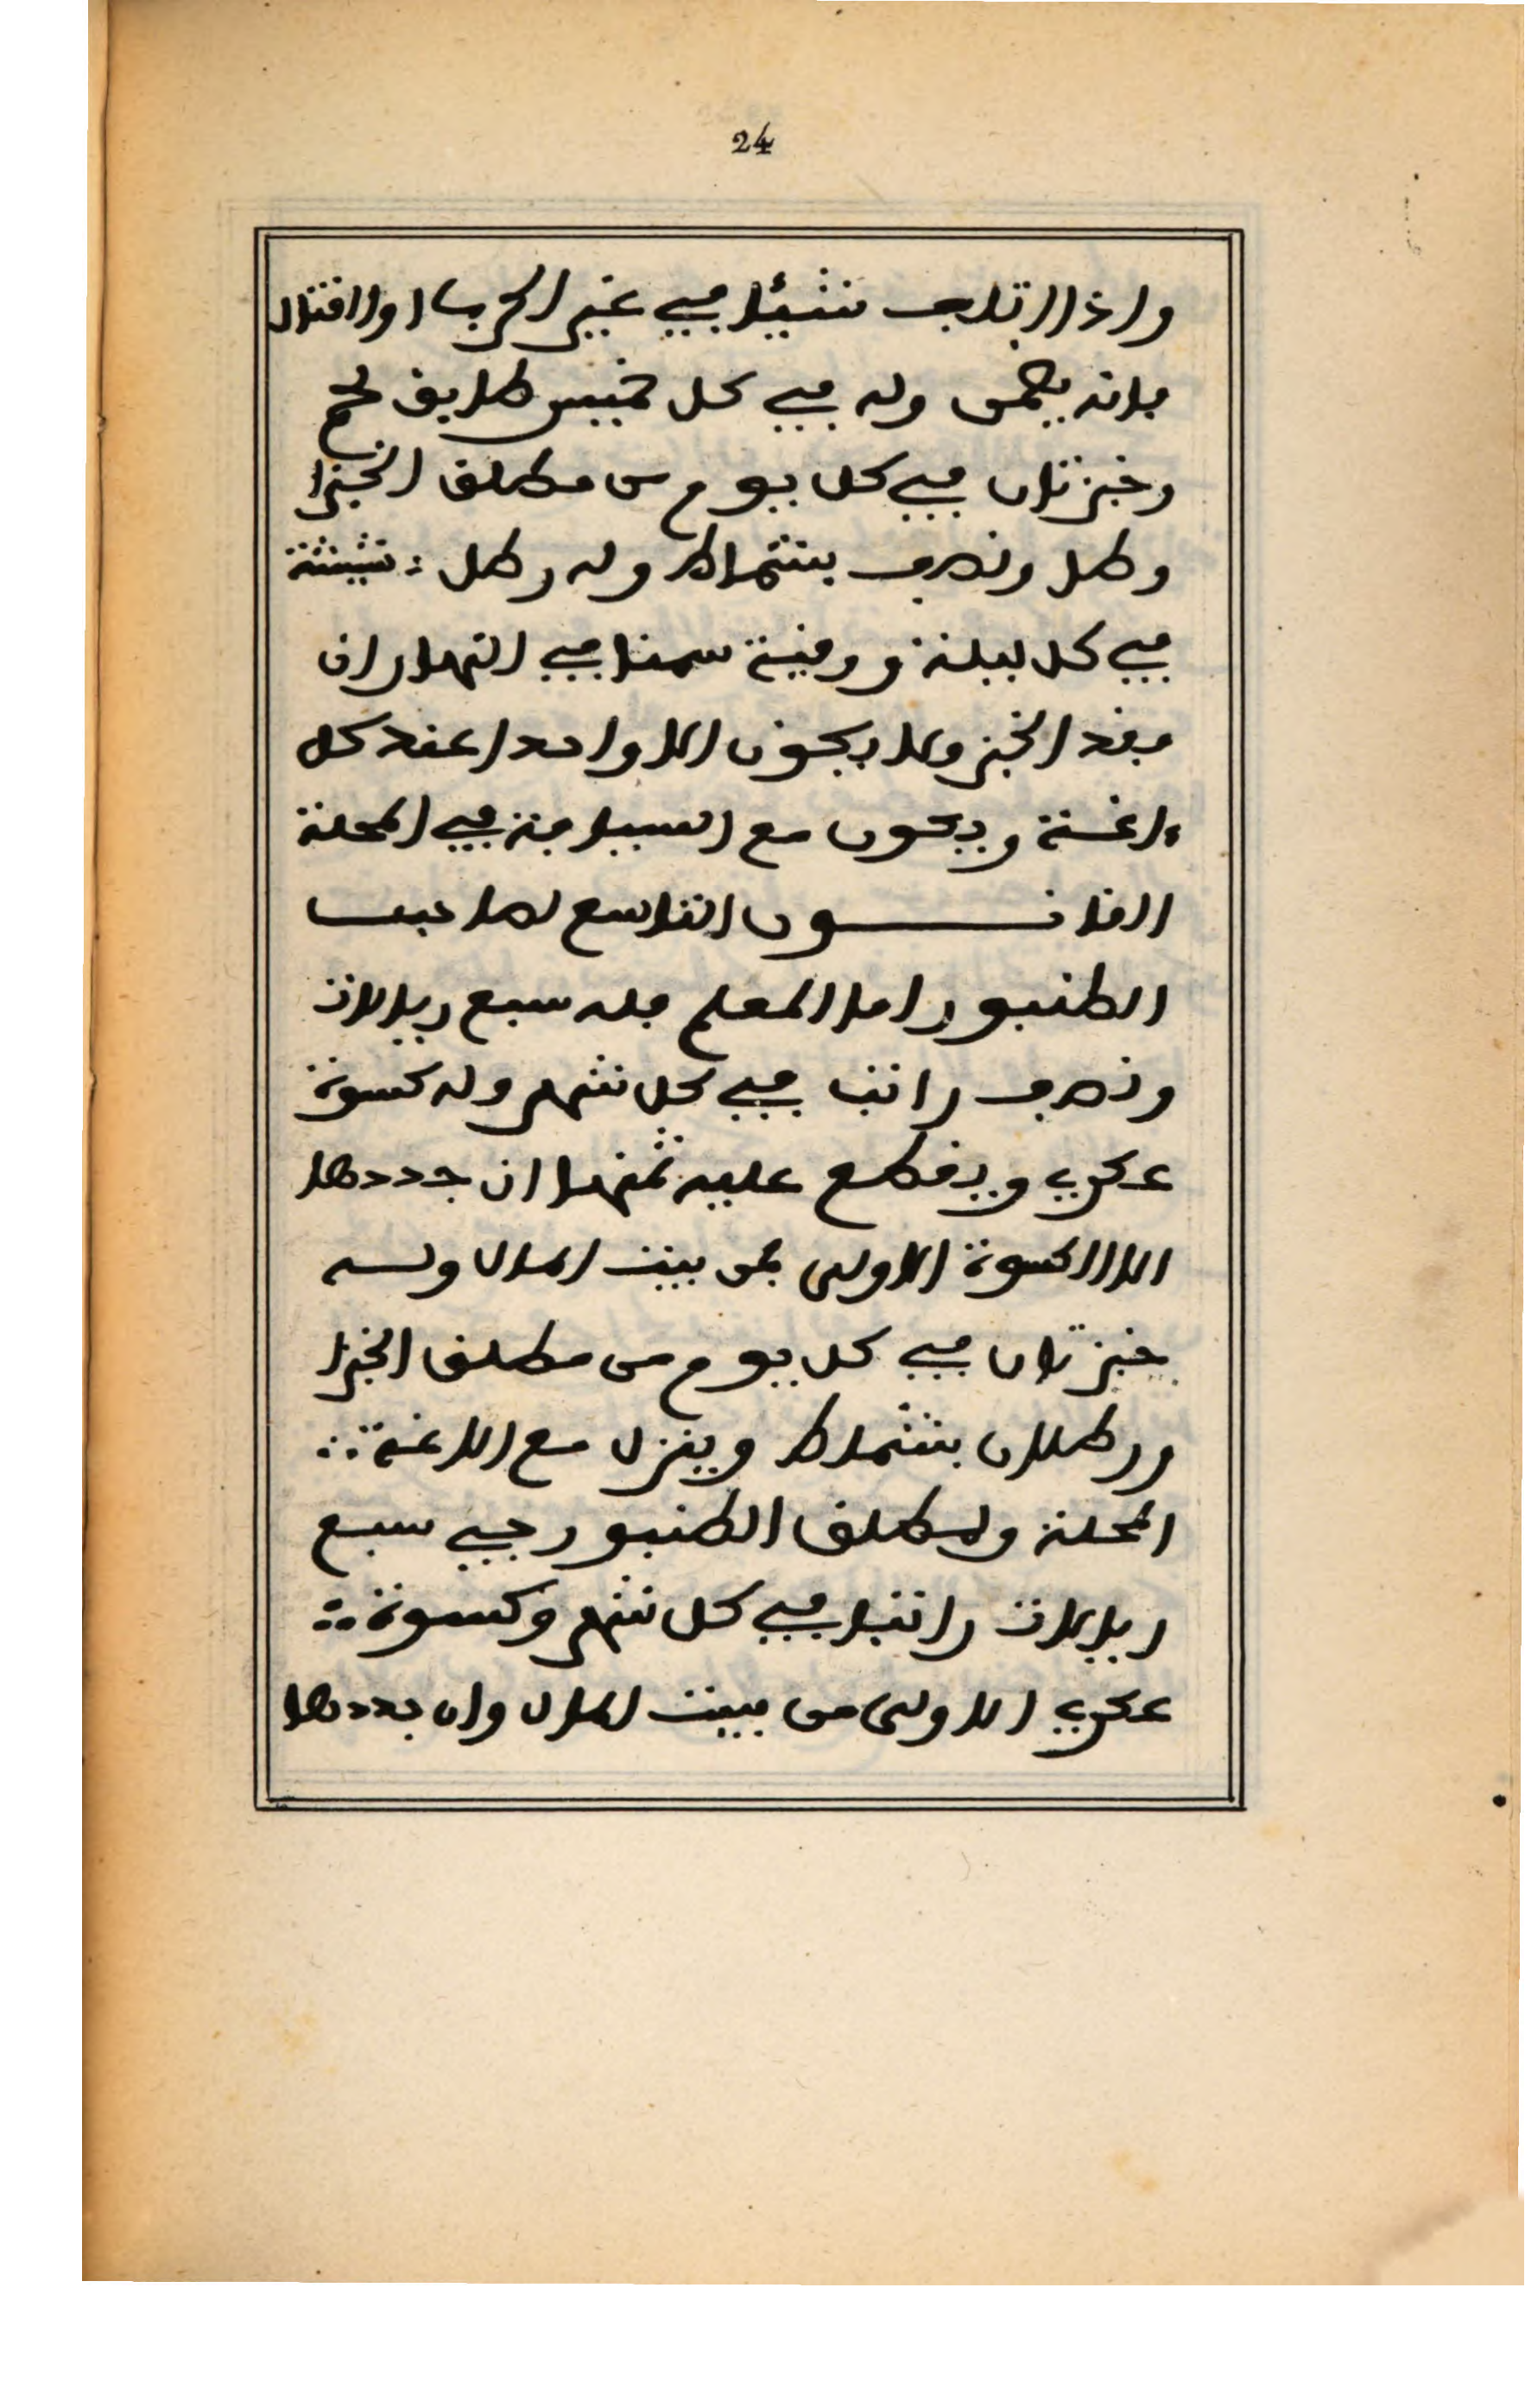 24
واذا اتلف شيئا في غير الحرب او القتال
فانه يضمن وله في كل خميس طريف لحم
وخبزتان في كل يوم من مطلق الخبز ا
وطل ونصف بشماط وله رطل : شيشة
في كل ليلة ووقية سمنا في النهار ان
فقد الخبز ولا يكون الا واحدا عند كل
ءاغة ويكون مع السيافة في المحلة
القانون التاسع لصاحب
الطنبور اما المعلم فله سبع ريالات
ونصف راتبا في كل شهر وله كسوة
عكري ويقطع عليه ثمنها ان جددها
الا الكسوة الاولى فمن بيت المال وله
خبزتان في كل يوم من مطلق الخبز ا
ورطلان بشماط وينزل مع الاغة ∴
المحلة ولمطلق الطنبورجي سبع
ريالات راتبا في كل شهر وكسوة ∴
عكري الاولى من بيت المال وان جددها